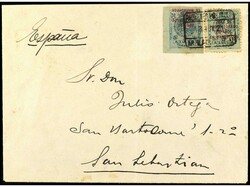 España
Sr. Don
Julio Ortega
San Bartolomé 1-2º
San Sebastian